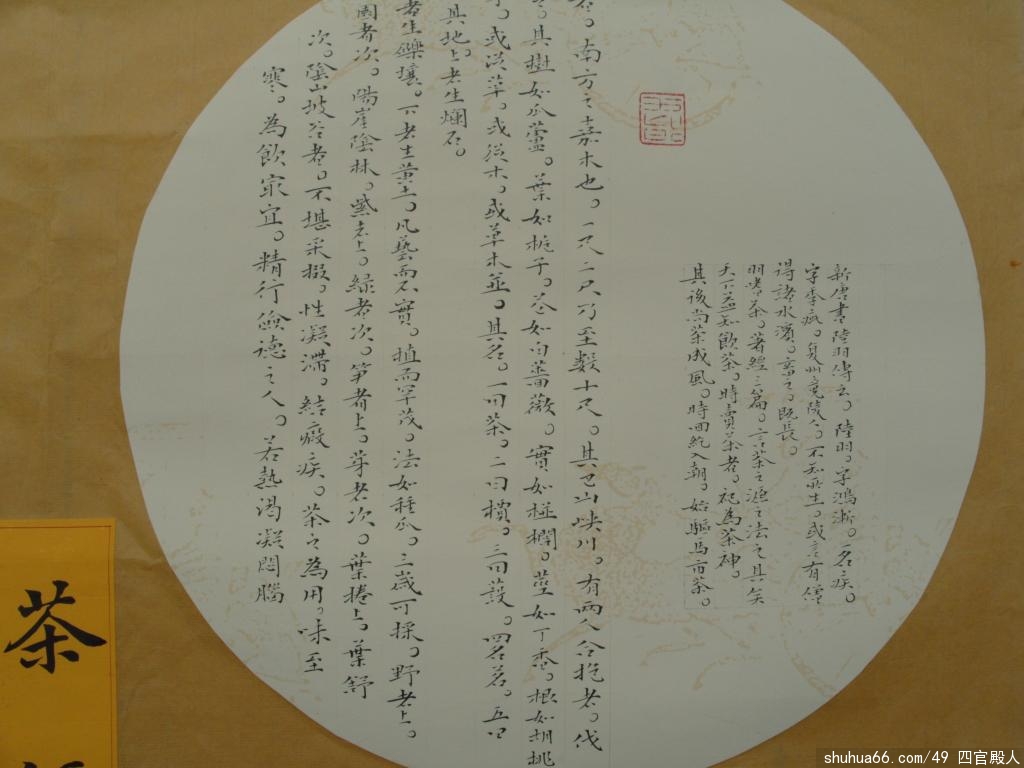 新唐書陸羽傳云。陸羽。字鴻漸。一名疾。
字季疵。復州竟陵人。不知所生。或言有僧
得諸水濱。畜之。既長。
羽嗜茶。著經三篇。言茶之源之法之具矣
天下益知飲茶。時賣茶者。祀為茶神。
其後尚茶成風。時回紇入朝。始驅馬市茶。
者。南方之嘉木也。一尺二尺乃至數十尺。其巴山峽川。有兩人合抱者。伐
其樹如瓜蘆。葉如梔子。花如白薔薇。實如栟櫚。莖如丁香。根如胡桃
或從草。或從木。或草木並。其名。一曰茶。二曰檟。三曰蔎。四名茗。五曰
其地。上者生爛石。
者生礫壤。下者生黃土。凡藝而不實。植而罕茂。法如種瓜。三歲可採。野者上。
園者次。陽崖陰林。紫者上。綠者次。笋者上。芽者次。葉捲上。葉舒
次。陰山坡谷者。不堪采掇。性凝滯。結瘕疾。茶之為用。味至
寒。為飲最宜。精行儉德之人。若熱渴凝悶腦
茶
shuhua66.com/49 四官殿人